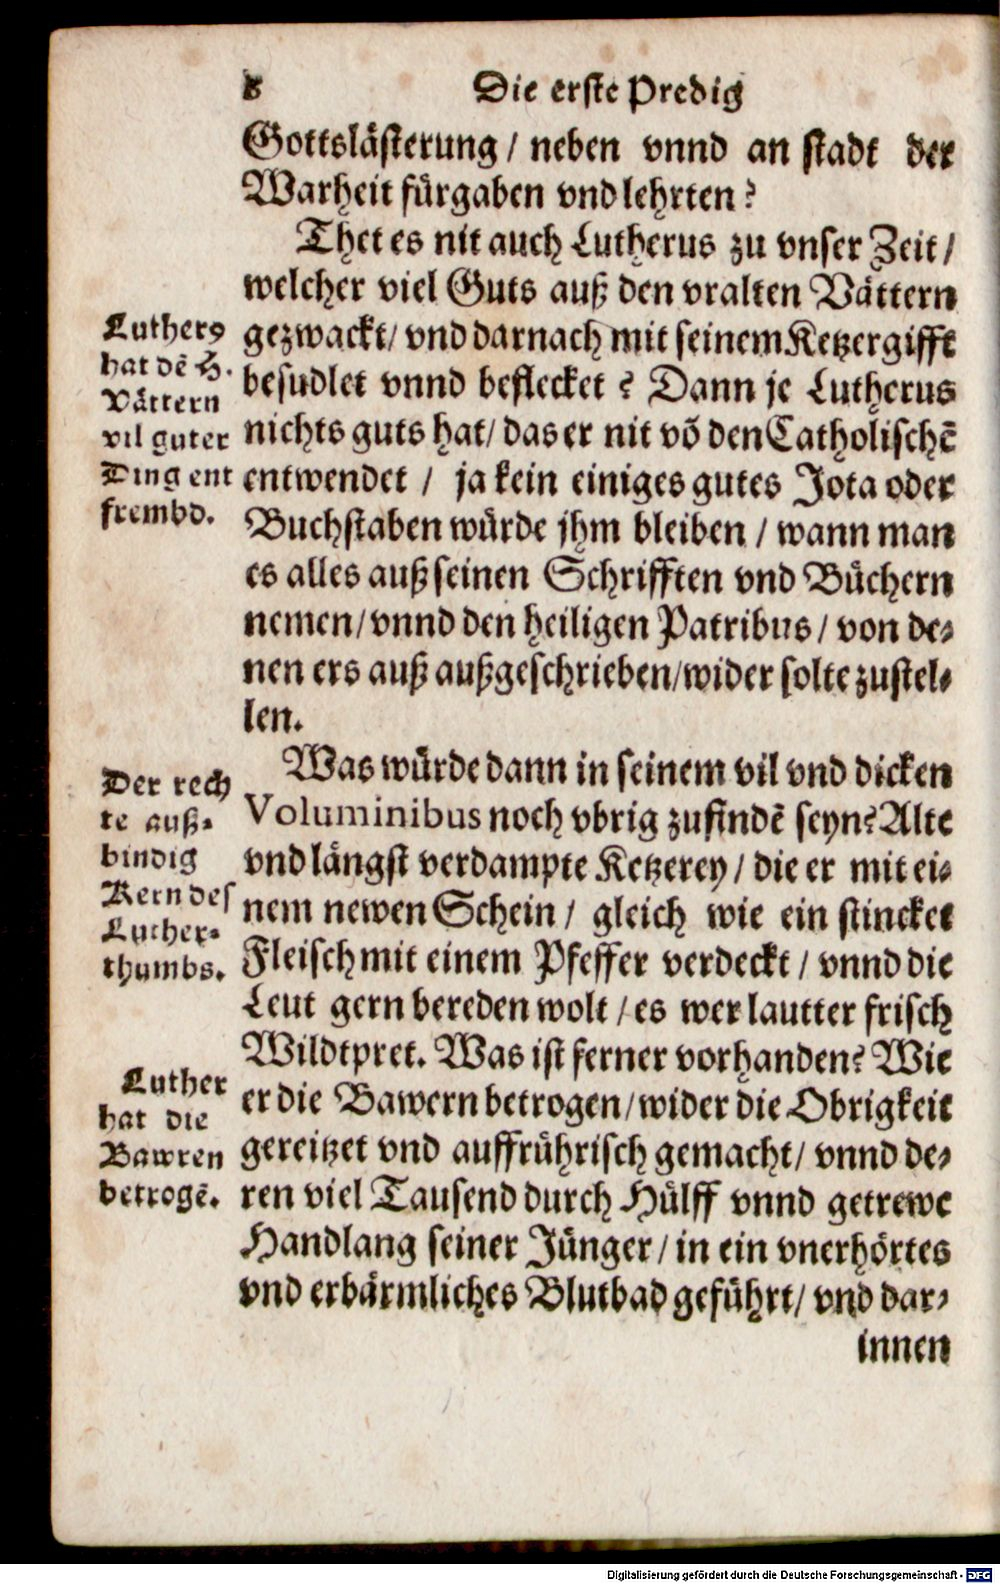 8 Die erste Predig
Gottslästerung / neben vnnd an stadt der
Warheit fürgaben vnd lehrten?
Thet es nit auch Lutherus zu vnser Zeit /
welcher viel Guts auß den vralten Vättern
gezwackt / vnd darnach mit seinem Ketzergifft
besudlet vnnd beflecket? Dann je Lutherus
nichts guts hat / das er nit võ den Catholischẽ
entwendet / ja kein einiges gutes Jota oder
Buchstaben würde jhm bleiben / wann man
es alles auß seinen Schrifften vnd Büchern
nemen / vnnd den heiligen Patribus / von de-
nen ers auß außgeschrieben / wider solte zustel-
len.
Was würde dann in seinem vil vnd dicken
Voluminibus noch vbrig zufindẽ seyn? Alte
vnd längst verdampte Ketzerey / die er mit ei-
nem newen Schein / gleich wie ein stincket
Fleisch mit einem Pfeffer verdeckt / vnnd die
Leut gern bereden wolt / es wer lautter frisch
Wildtpret. Was ist ferner vorhanden? Wie
er die Bawern betrogen / wider die Obrigkeit
gereitzet vnd auffrührisch gemacht / vnnd de-
ren viel Tausend durch Hülff vnnd getrewe
Handlang seiner Jünger / in ein vnerhörtes
vnd erbärmliches Blutbad geführt / vnd dar-
innen
Lutherꝰ
hat dẽ H.
Vättern
vil guter
Ding ent
frembd.
Der rech
te auß-
bindig
Kern des
Luther-
thumbs.
Luther
hat die
Bawren
betrogẽ.
Digitalisierung gefördert durch die Deutsche Forschungsgemeinschaft - DFG